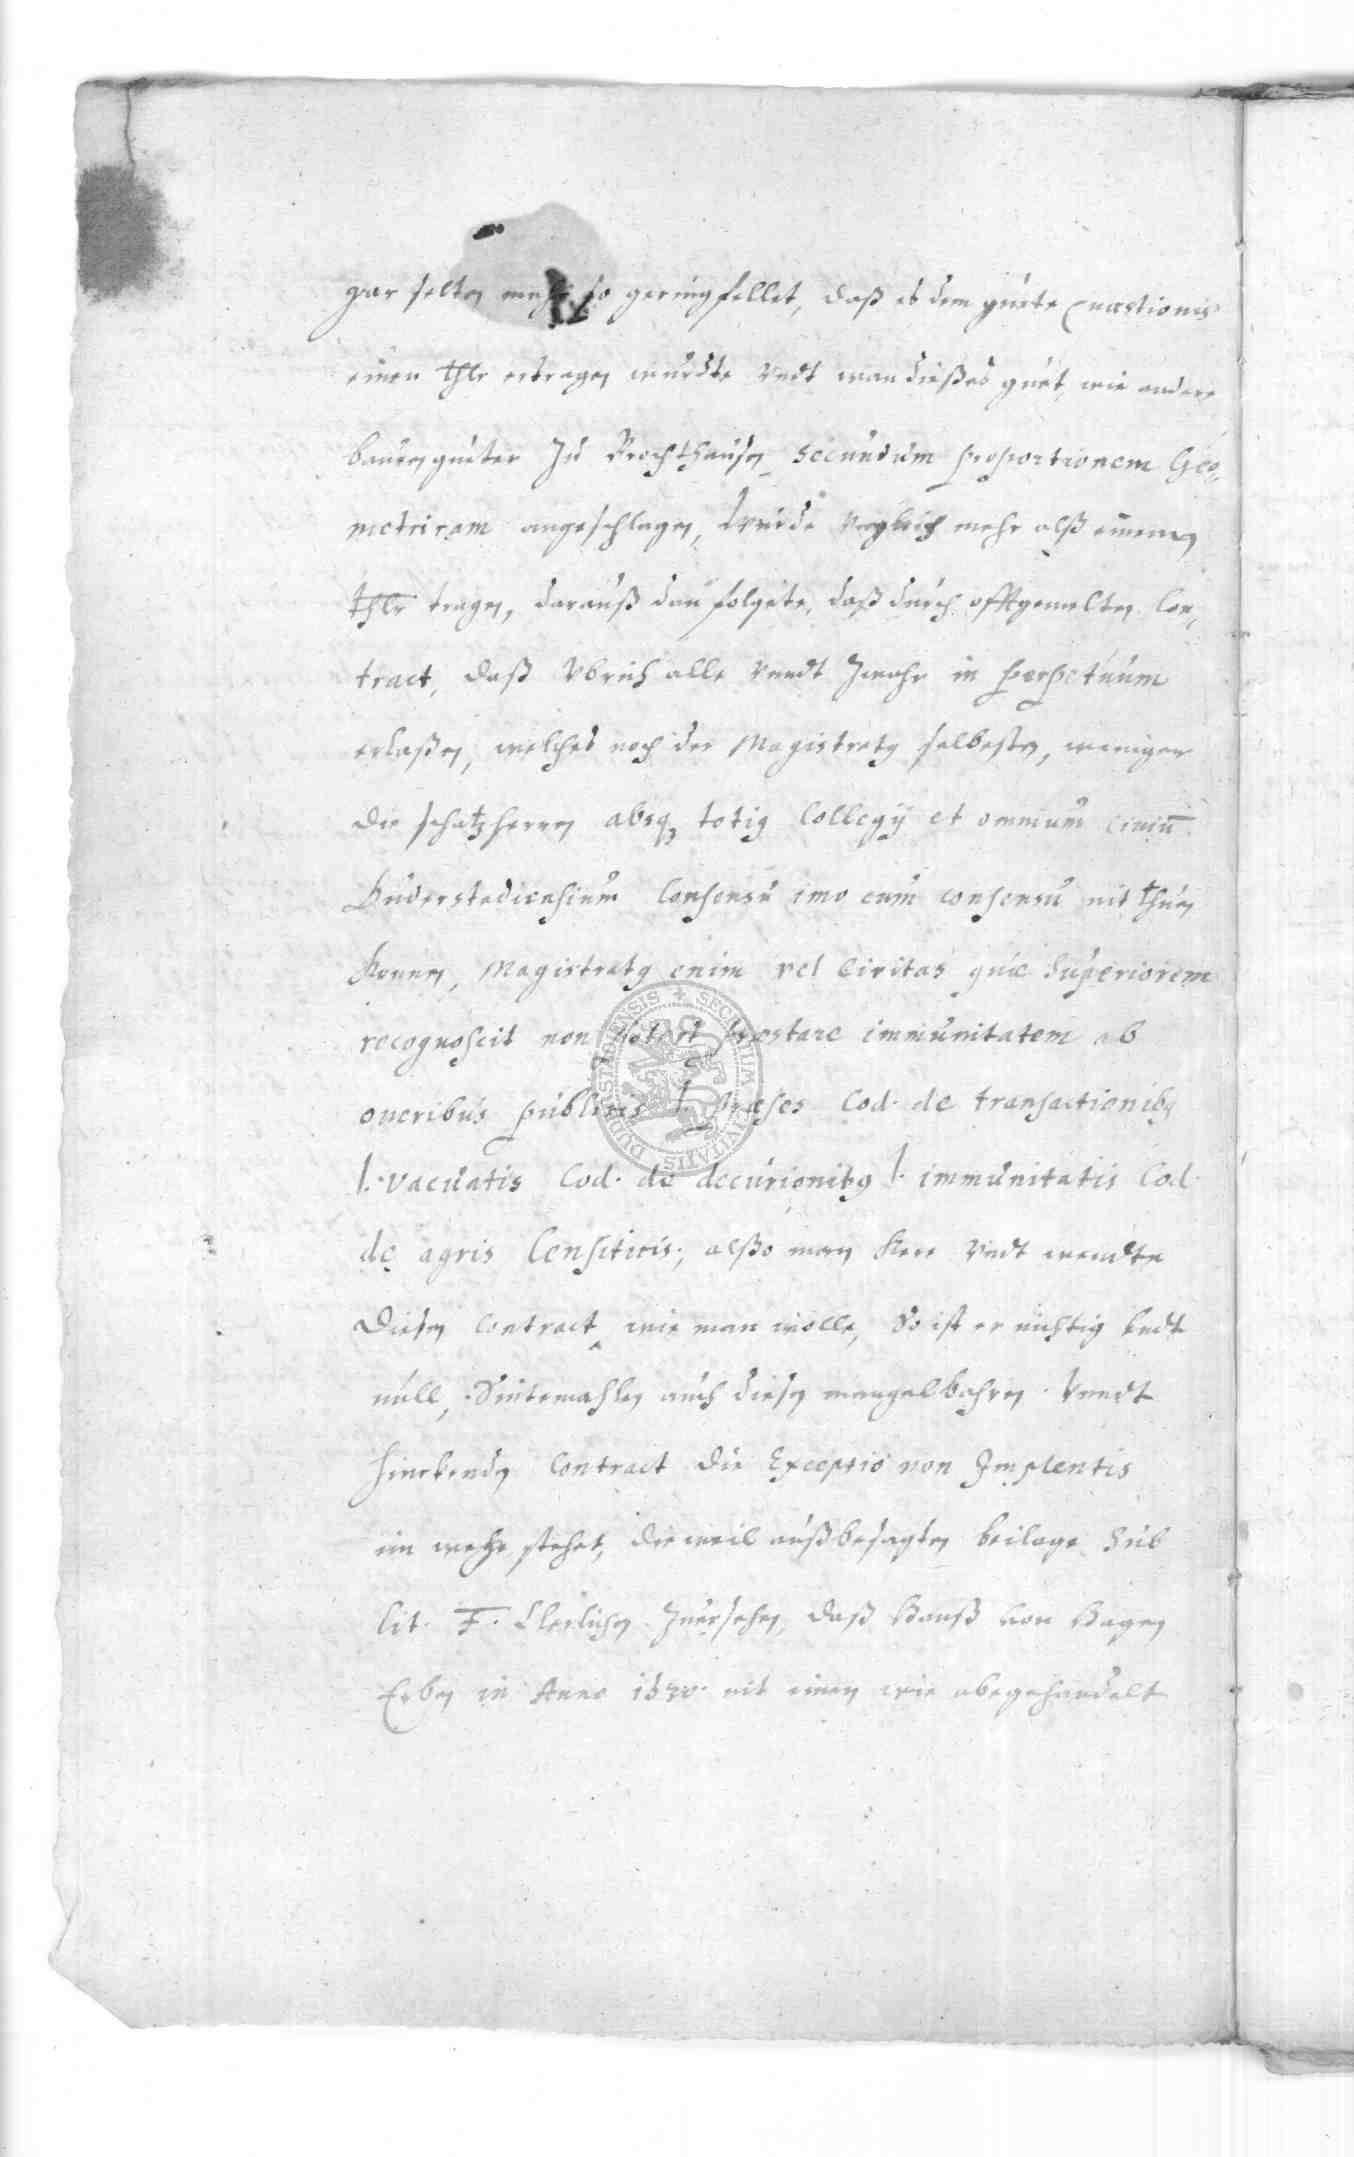 gar selten mehr so gering fellet, daß es dem guete Quæstionis
einen thlr ertragen wurdte Vndt wan dießes guet, wie andere
bauren gueter Zu Brochthausen, secundum proportionem Geo,
metricam angeschlagen, wurde mehr alß einen
thlr tragen, darauß dan folgete, daß durch offtgemelten Con,
tract, daß Vbrich alle Vnndt Zwahr in perpetuum
erlaßen, welches noch der Magistratg selbesten, weniger
die schatzherren absq totig Collegij et omnium civiū
Duderstadiensium Consensu imo cum consensu nit thuen
konnen, Magistratg enim vel Civitas quæ Superiorem
recognoscit non potest præstare immunitatem ab
oneribus publicis l. præses Cod. de transactionibg
l. vacuatis Cod. de decurionibg l. immunitatis Cod.
de agris Censiticis; alßo man kere Vndt wendte
diesen Contract, wie man wolle, So ist er nichtig Vndt
null, Sintemahlen auch diesen mangelbahren Vnndt
hinckenden Contract die Exceptio non Implentis
im wege stehet, dieweil auß besagten beilage Sub
lit. F. Clerlichen Zuersehen, daß Hanß von Hagen
Erben in Anno nit einen wie abgehandelt
SECRETUM CIVITATIS DUDERSTADENSIS